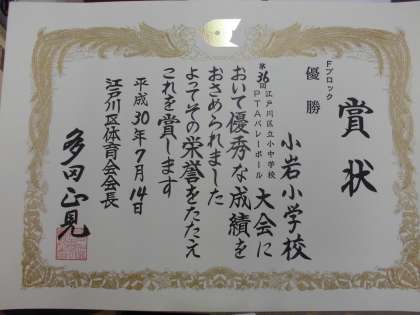 賞状
Fブロック
優勝
小岩小学校
第36回
江戸川区立小中学校
PTAバレーボール
大会に
おいて優秀な成績を
おさめられました
よってその栄誉をたたえ
これを賞します
平成30年7月14日
江戸川区体育会会長
多田正見